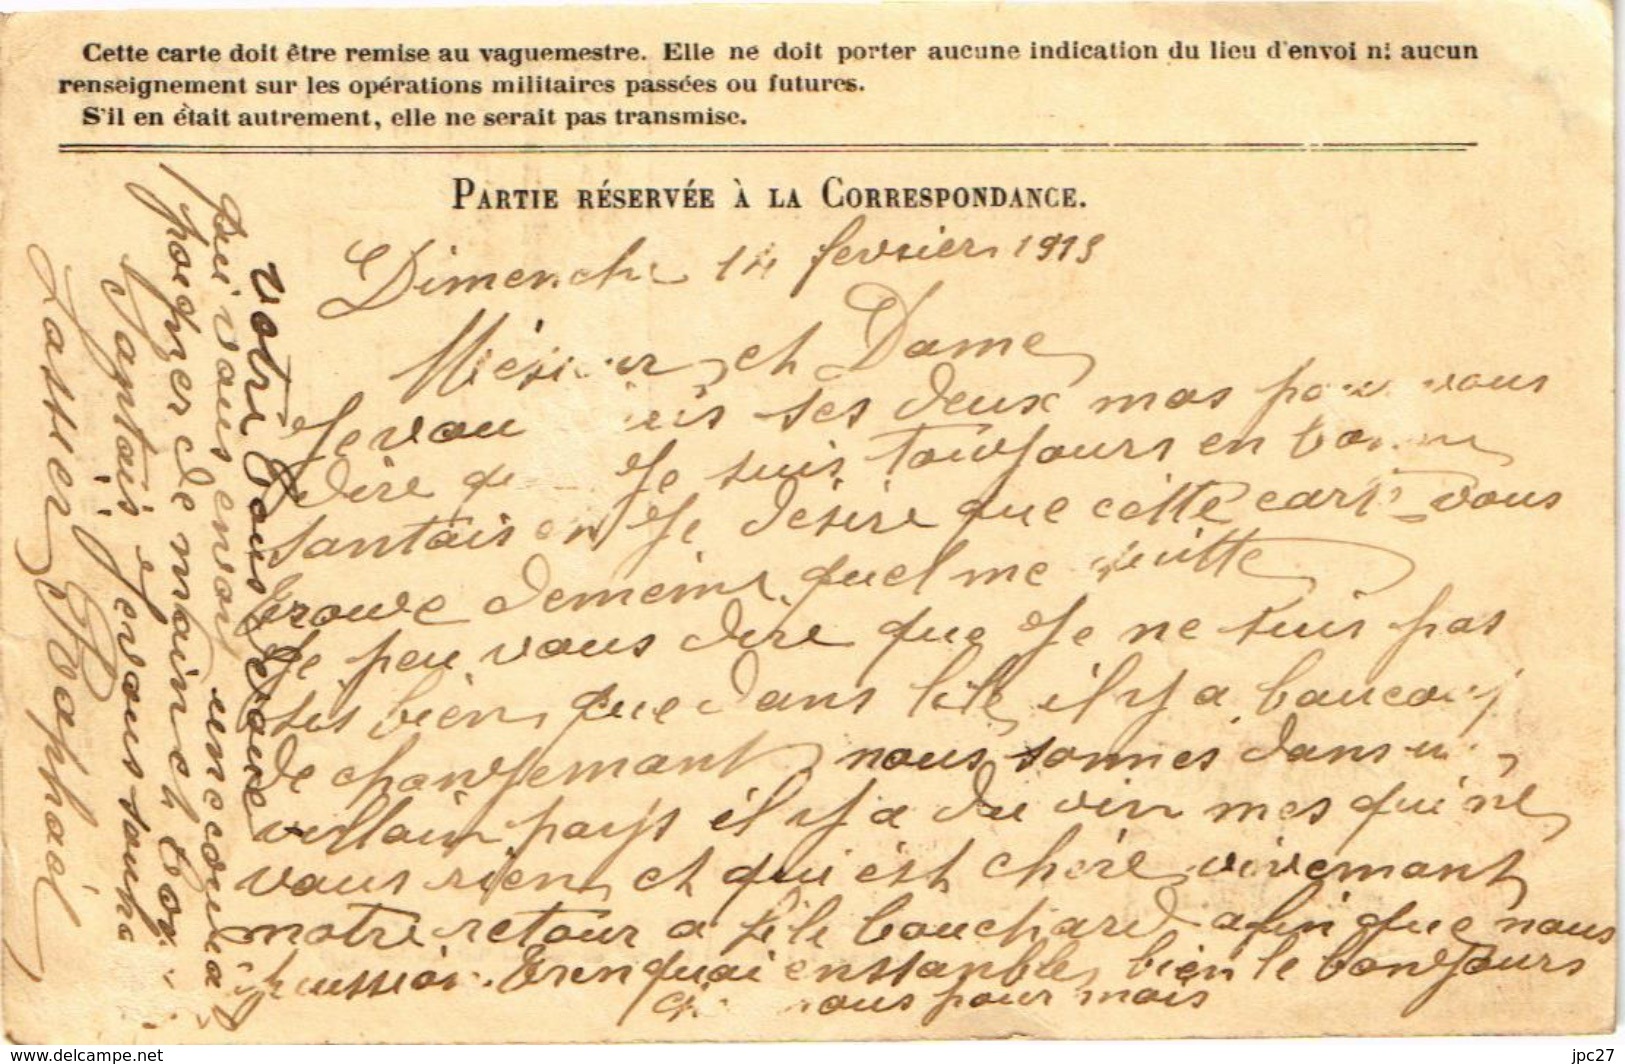 Cette carte doit être remise au vaguemestre. Elle ne doit porter aucune indication du lieu d'envoi ni aucun
renseignement sur les opérations militaires passées ou futures.
S'il en était autrement, elle ne serait pas transmise.
PARTIE RÉSERVÉE À LA CORRESPONDANCE.
Dimenche 14 fevrier 1915
et Dame
Je vou ses deux mos pour vous
dire Je suis toujours en bonne
santais Je désire que cette carte vous
trouve demeime quel me quitte
Je peu vous dire que Je ne suis pas
sis bien que dans lile il y a baucoup
de changemant nous sonmes dans
villain pays il y a du vin mes qui ne
vaus rien et qui est chere vivemant
notre retour a lile bouchard afin que nous
trenquai enssanble bien le bonjours
vous pour mois
votre tous devoué
qui vous envoi une
poigner de main et
Je vous
Lassier Raphael
www.delcampe.net
jpc27